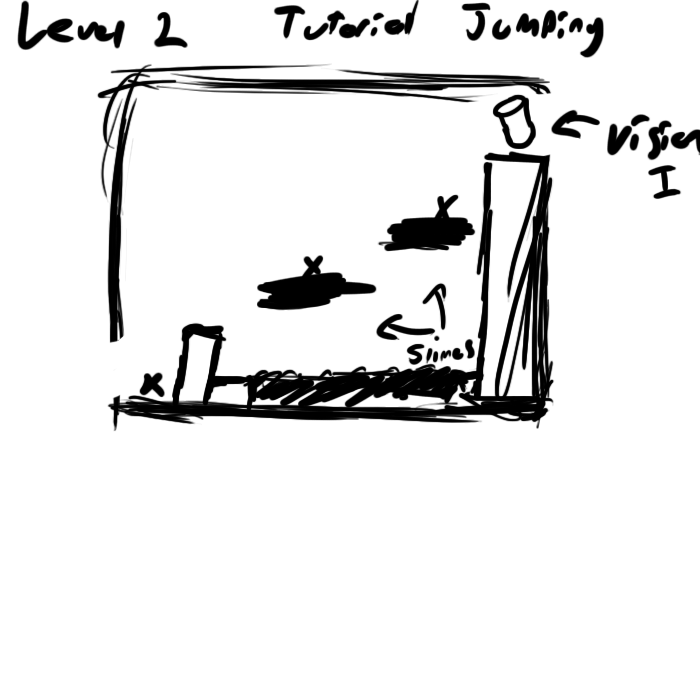 Level 2 Tutorial Jumping
Vision
I
x
x
Slimes
x